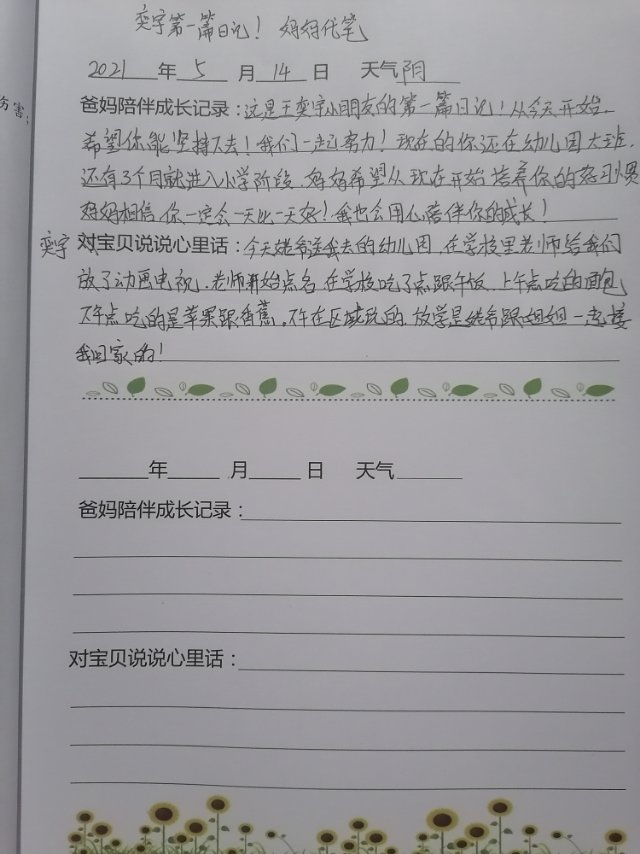 奕宇第一篇日记！ 妈妈代笔
2021年5月14日 天气阴
伤害；
爸妈陪伴成长记录：这是王奕宇小朋友的第一篇日记！从今天开始，
希望你能坚持下去！我们一起努力！现在的你还在幼儿园大班，
还有3个月就进入小学阶段，妈妈希望从现在开始培养你的好习惯
妈妈相信你一定会一天比一天好！我也会用心陪伴你的成长！
奕宇 对宝贝说说心里话：今天姥爷送我去的幼儿园，在学校里老师给我们
放了动画电视，老师开始点名，在学校吃了点跟午饭，上午点吃的面包
下午点吃的是苹果跟香蕉，下午在区域玩的，放学是姥爷跟姐姐一起接
我回家的！
年 月 日 天气
爸妈陪伴成长记录：
对宝贝说说心里话：